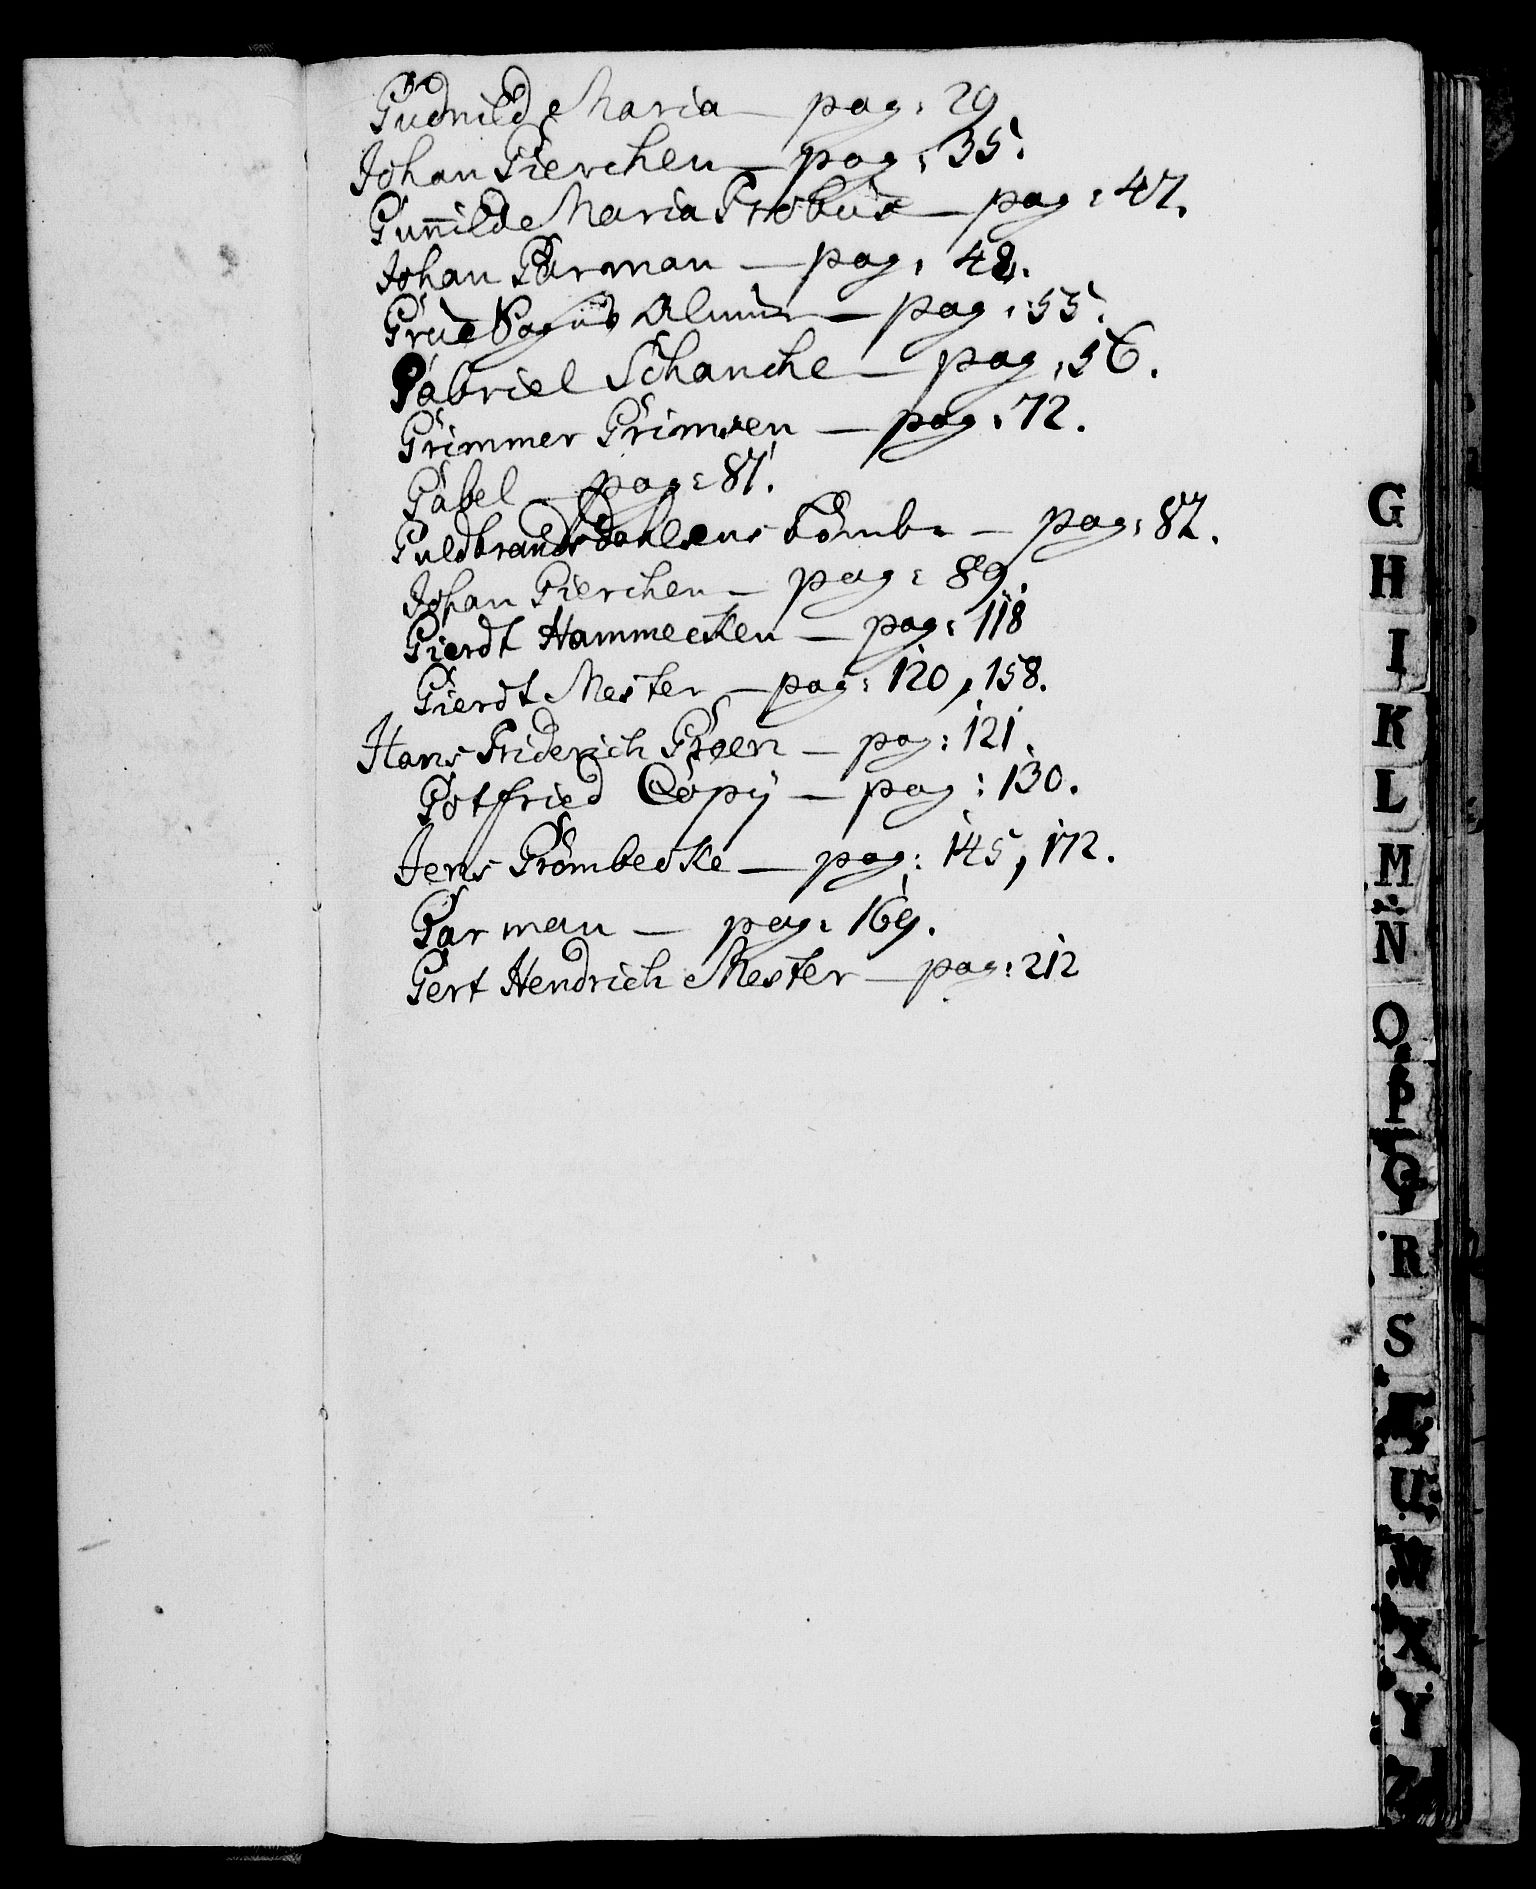 Gudnild Maria — pag: 29
Johan Gierchen — pag: 35.
Gunilde Maria Grobus — pag: 47.
Johan Garman — pag: 48.
Grue — pag: 55.
Gabriel Schanche — pag: 56.
Grimmer Grimsen — pag: 72.
Gabel — pag: 87.
Guldbrandsdahlens Comb: — pag: 82.
Johan Gierchen — pag: 89.
Gierdt Hammecken — pag: 118
Gierdt Mester — pag: 120, 158.
Hans Friderich Groen — pag: 121.
Gotfried Copÿ — pag: 130.
Jens Grømbecke — pag: 145, 172.
Garman — pag: 169.
Gert Hendrich Mester — pag: 212
G
H
I
K
L
M
N
O
P
Q
R
S
T
U
W
X
Y
Z